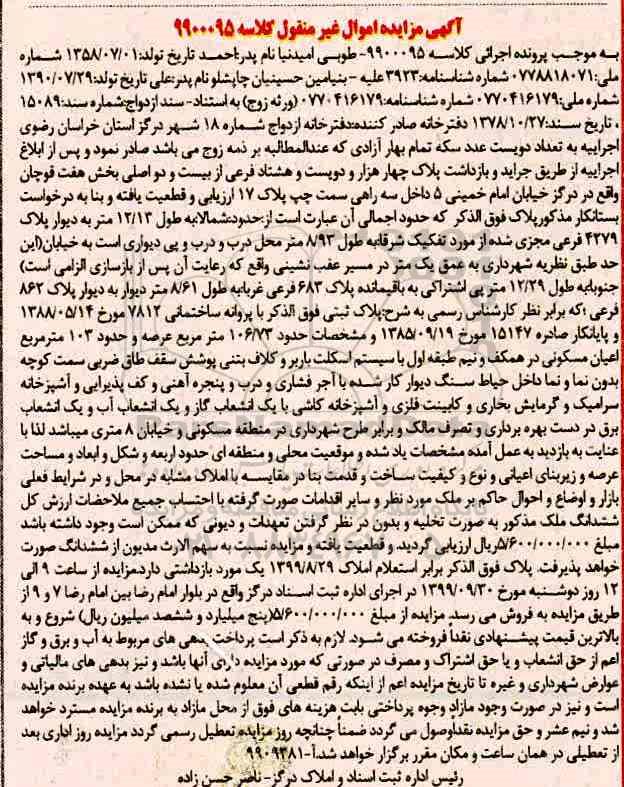 آگهی مزایده اموال غیر منقول کلاسه ۹۹۰۰۰۹۵
به موجب پرونده اجرائی کلاسه ۹۹۰۰۰۹۵- طوبی امیدنیا نام پدر:احمد تاریخ تولد:۱۳۵۸/۰۷/۰۱ شماره
ملی:۰۷۷۸۸۱۸۰۷۱ شماره شناسنامه:۳۹۲۳علیه - بنیامین حسینیان چاپشلو نام پدر:علی تاریخ تولد:۱۳۹۰/۰۷/۲۹
شماره ملی:۰۷۷۰۴۱۶۱۷۹ شماره شناسنامه:۰۷۷۰۴۱۶۱۷۹ (ورثه زوج) به استناد- سند ازدواج:شماره سند:۱۵۰۸۹
، تاریخ سند:۱۳۷۸/۱۰/۲۷ دفترخانه صادر کننده:دفترخانه ازدواج شماره ۱۸ شهر درگز استان خراسان رضوی
اجراییه به تعداد دویست عدد سکه تمام بهار آزادی که عندالمطالبه بر ذمه زوج می باشد صادر نمود و پس از ابلاغ
اجراییه از طریق جراید و بازداشت پلاک چهار هزار و دویست و هشتاد فرعی از بیست و دو اصلی بخش هفت قوچان
واقع در درگز خیابان امام خمینی ۵ داخل سه راهی سمت چپ پلاک ۱۷ ارزیابی و قطعیت یافته و بنا به درخواست
بستانکار مذکورپلاک فوق الذکر که حدود اجمالی آن عبارت است از:حدود:شمالابه طول ۱۲/۱۳ متر به دیوار پلاک
۴۲۷۹ فرعی مجزی شده از مورد تفکیک شرقابه طول ۸/۹۳ متر محل درب و درب و پی دیواری است به خیابان(این
حد طبق نظریه شهرداری به عمق یک متر در مسیر عقب نشینی واقع که رعایت آن پس از بازسازی الزامی است)
جنوبابه طول ۱۲/۲۹ متر پی اشتراکی به باقیمانده پلاک ۶۸۳ فرعی غربابه طول ۸/۶۱ متر دیوار به دیوار پلاک ۸۶۲
فرعی ؛که برابر نظر کارشناس رسمی به شرح:پلاک ثبتی فوق الذکر با پروانه ساختمانی ۷۸۱۲ مورخ ۱۳۸۸/۰۵/۱۴
و پایانکار صادره ۱۵۱۴۷ مورخ ۱۳۸۵/۰۹/۱۹ و مشخصات حدود ۱۰۶/۷۳ متر مربع عرصه و حدود ۱۰۳ مترمربع
اعیان مسکونی در همکف و نیم طبقه اول با سیستم اسکلت باربر و کلاف بتنی پوشش سقف طاق ضربی سمت کوچه
بدون نما و نما داخل حیاط سنگ دیوار کار شده با آجر فشاری و درب و پنجره آهنی و کف پذیرایی و آشپزخانه
سرامیک و گرمایش بخاری و کابینت فلزی و آشپزخانه کاشی با یک انشعاب گاز و یک انشعاب آب و یک انشعاب
برق در دست بهره برداری و تصرف مالک و برابر طرح شهرداری در منطقه مسکونی و خیابان ۸ متری میباشد لذا با
عنایت به بازدید به عمل آمده مشخصات یاد شده و موقعیت محلی و منطقه ای حدود اربعه و شکل و ابعاد و مساحت
عرصه و زیربنای اعیانی و نوع و کیفیت ساخت و قدمت بنا در مقایسه با املاک مشابه در محل و در شرایط فعلی
بازار و اوضاع و احوال حاکم بر ملک مورد نظر و سایر اقدامات صورت گرفته با احتساب جمیع ملاحضات ارزش کل
ششدانگ ملک مذکور به صورت تخلیه و بدون در نظر گرفتن تعهدات و دیونی که ممکن است وجود داشته باشد
مبلغ ۵/۶۰۰/۰۰۰/۰۰۰ریال ارزیابی گردید. و قطعیت یافته و مزایده نسبت به سهم الارث مدیون از ششدانگ صورت
خواهد پذیرفت. پلاک فوق الذکر برابر استعلام املاک ۱۳۹۹/۸/۲۹ یک مورد بازداشتی دارد.مزایده از ساعت ۹ الی
۱۲ روز دوشنبه مورخ ۱۳۹۹/۰۹/۳۰ در اجرای اداره ثبت اسناد درگز واقع در بلوار امام رضا بین امام رضا ۷ و ۹ از
طریق مزایده به فروش می رسد. مزایده از مبلغ ۵/۶۰۰/۰۰۰/۰۰۰(پنج میلیارد و ششصد میلیون ریال) شروع و به
بالاترین قیمت پیشنهادی نقداً فروخته می شود. لازم به ذکر است پرداخت بدهی های مربوط به آب و برق و گاز
اعم از حق انشعاب و یا حق اشتراک و مصرف در صورتی که مورد مزایده دارای آنها باشد و نیز بدهی های مالیاتی و
عوارض شهرداری و غیره تا تاریخ مزایده اعم از اینکه رقم قطعی آن معلوم شده یا نشده باشد به عهده برنده مزایده
است و نیز در صورت وجود مازاد وجوه پرداختی بابت هزینه های فوق از محل مازاد به برنده مزایده مسترد خواهد
شد و نیم عشر و حق مزایده نقداًوصول می گردد ضمناً چنانچه روز مزایده تعطیل رسمی گردد مزایده روز اداری بعد
از تعطیلی در همان ساعت و مکان مقرر برگزار خواهد شد.آ-۹۹۰۹۳۸۱
رئیس اداره ثبت اسناد و املاک درگز- ناصر حسن زاده